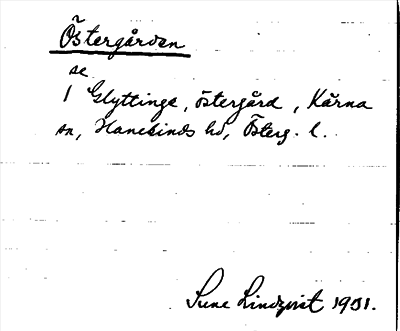 Östergården
se
1 Glyttinge, östergård, Kärna
sn, Hanekinds hd, Österg. l.
Sune Lindqvist 1931.